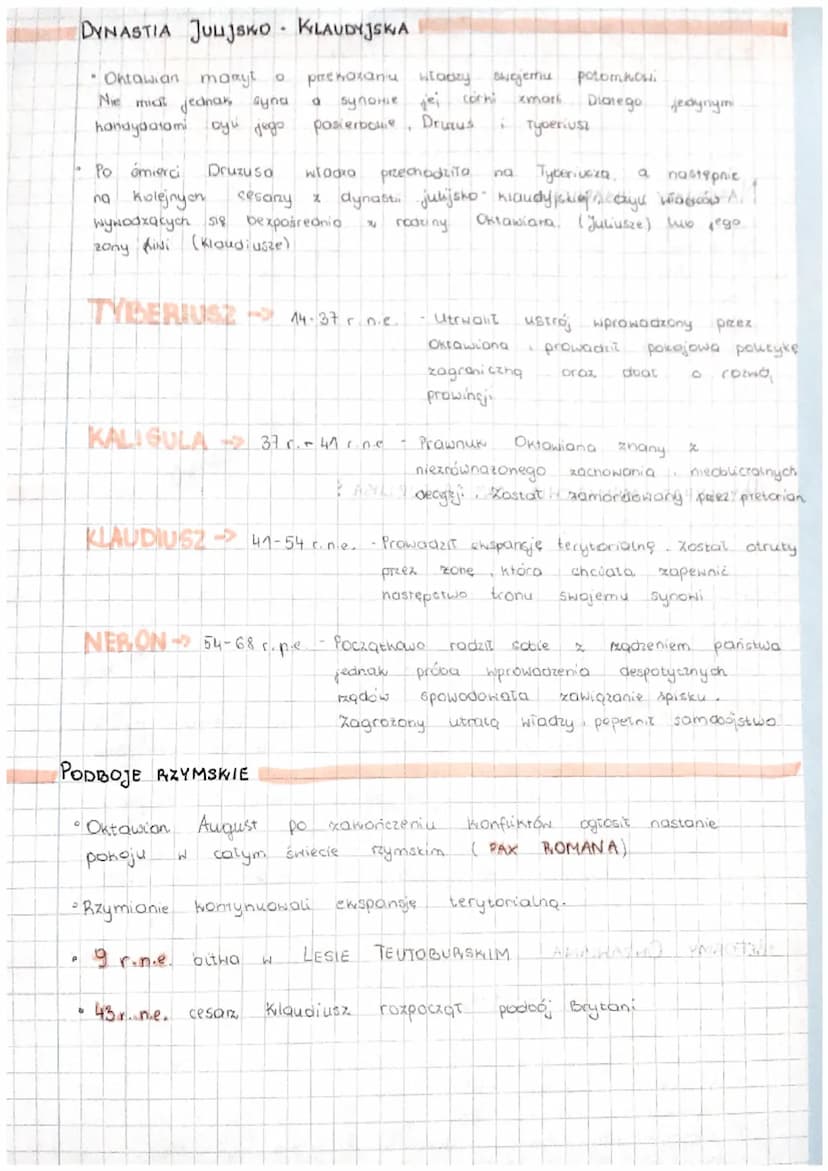 DYNASTIA JULIJSKO - KLAUDYJSKA
• Oktawian marzył o przekazaniu władzy swojemu potomkowi.
Nie miał jednak syna a synowie jej córki zmarli. Dlatego jedynymi
kandydatami byli jego pasierbowie, Druzus i Tyberiusz
• Po śmierci Druzusa władza przechodziła na Tyberiusza, a następnie
na kolejnych cesarzy z dynastii julijsko - klaudyjskiej, czyli władców
wywodzących się bezpośrednio z rodziny Oktawiana (Juliusze) lub jego
żony Liwii (Klaudiusze)
TYBERIUSZ → 14-37 r. n.e. - Utrwalił ustrój wprowadzony przez
Oktawiana, prowadził pokojową politykę
zagraniczną oraz dbał o rozwój
prowincji.
KALIGULA → 37 r. - 41 r. n.e - Prawnuk Oktawiana znany z
niezrównażonego zachowania, nieobliczalnych
decyzji. Został zamordowany przez pretorian
KLAUDIUSZ → 41-54 r. n.e. - Prowadził ekspansję terytorialną. Został otruty
przez żonę, która chciała zapewnić
następstwo tronu swojemu synowi
NERON → 54-68 r. n.e - Początkowo radził sobie z rządzeniem państwa
jednak próba wprowadzenia despotycznych
rządów spowodowała zawiązanie spisku.
Zagrożony utratą władzy, popełnił samobójstwo
PODBOJE RZYMSKIE
• Oktawian August po zakończeniu konfliktów ogłosił nastanie
pokoju w całym świecie rzymskim (PAX ROMANA)
• Rzymianie kontynuowali ekspansję terytorialną.
• 9 r.n.e. bitwa w LESIE TEUTOBURSKIM
• 43 r. n.e. cesarz Klaudiusz rozpoczął podbój Brytani